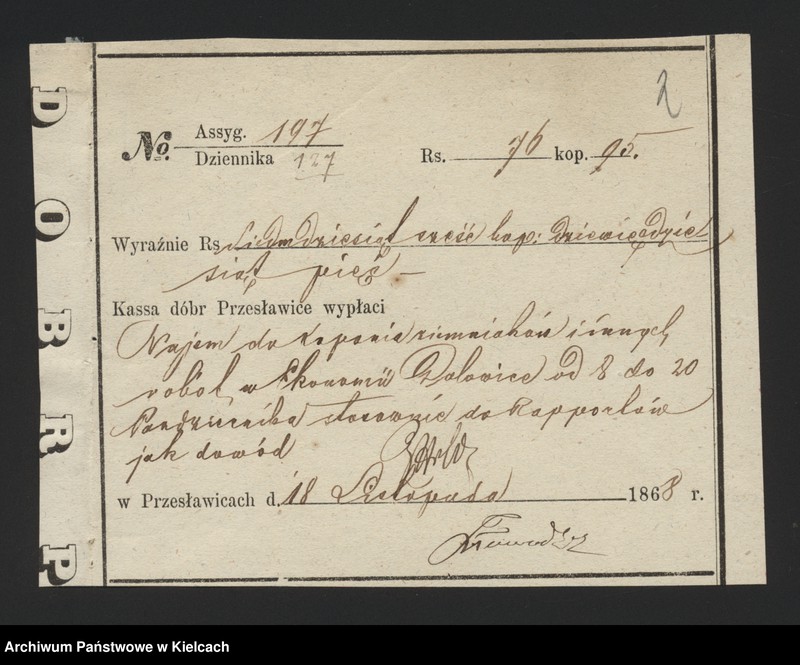 2
DOBR P
No. Assyg. 197
Dziennika 127
Rs. 76 kop. 95.
Wyraźnie Rs Siedmdziesiąt sześć kop: dziewięćdzie
siąt pięć –
Kassa dóbr Przesławice wypłaci
Najem do kopania ziemniaków i innych
robót w Ekonomii Dolowice od 8 do 20
Października stosownie do Rapportów
jak dowód
w Przesławicach d. 18 Listopada 1868 r.
Archiwum Państwowe w Kielcach